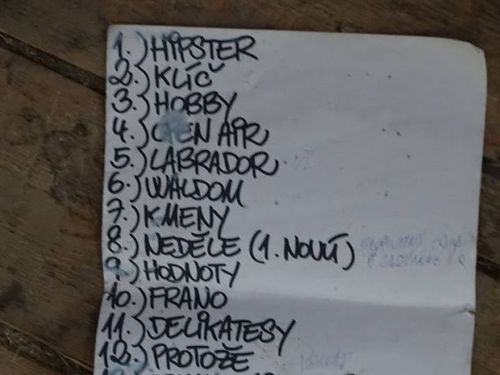 1.) HIPSTER
2.) KLÍČ
3.) HOBBY
4.) OPEN AIR
5.) LABRADOR
6.) WALDOM
7.) KMENY
8.) NEDĚLE (1. NOVÁ)
9.) HODNOTY
10.) FRANO
11.) DELIKATESY
12.) PROTOŽE